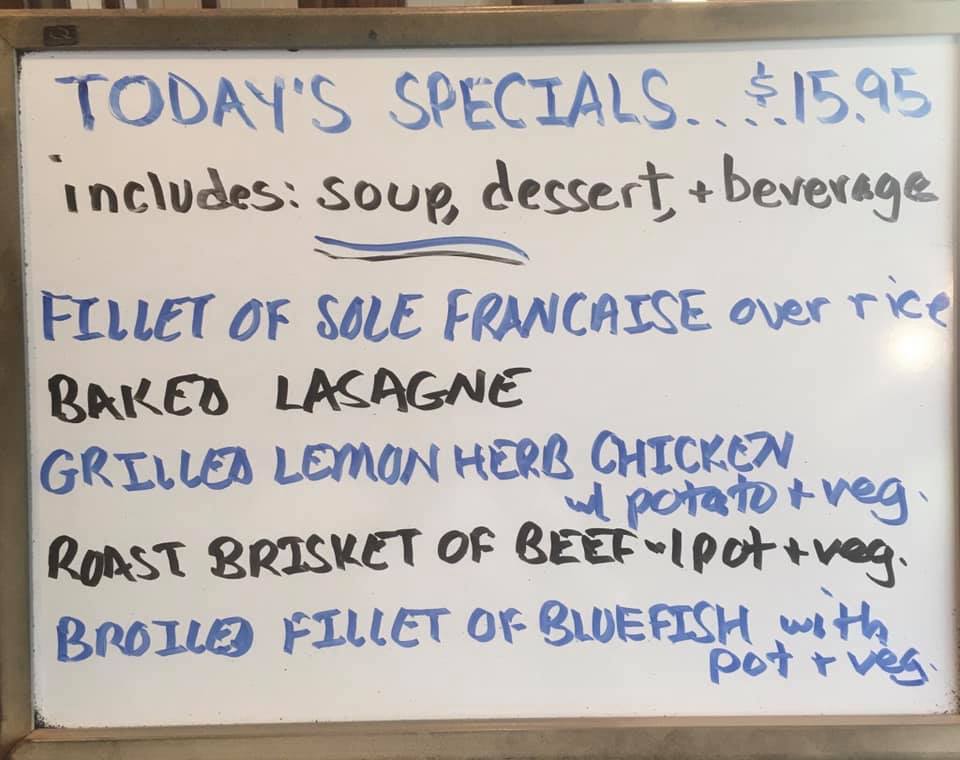 TODAY'S SPECIALS.....$15.95
includes: soup, dessert, + beverage
FILLET OF SOLE FRANCAISE over rice
BAKED LASAGNE
GRILLED LEMON HERB CHICKEN
w/ potato + veg.
ROAST BRISKET OF BEEF w/ pot + veg.
BROILED FILLET OF BLUEFISH with
pot + veg.